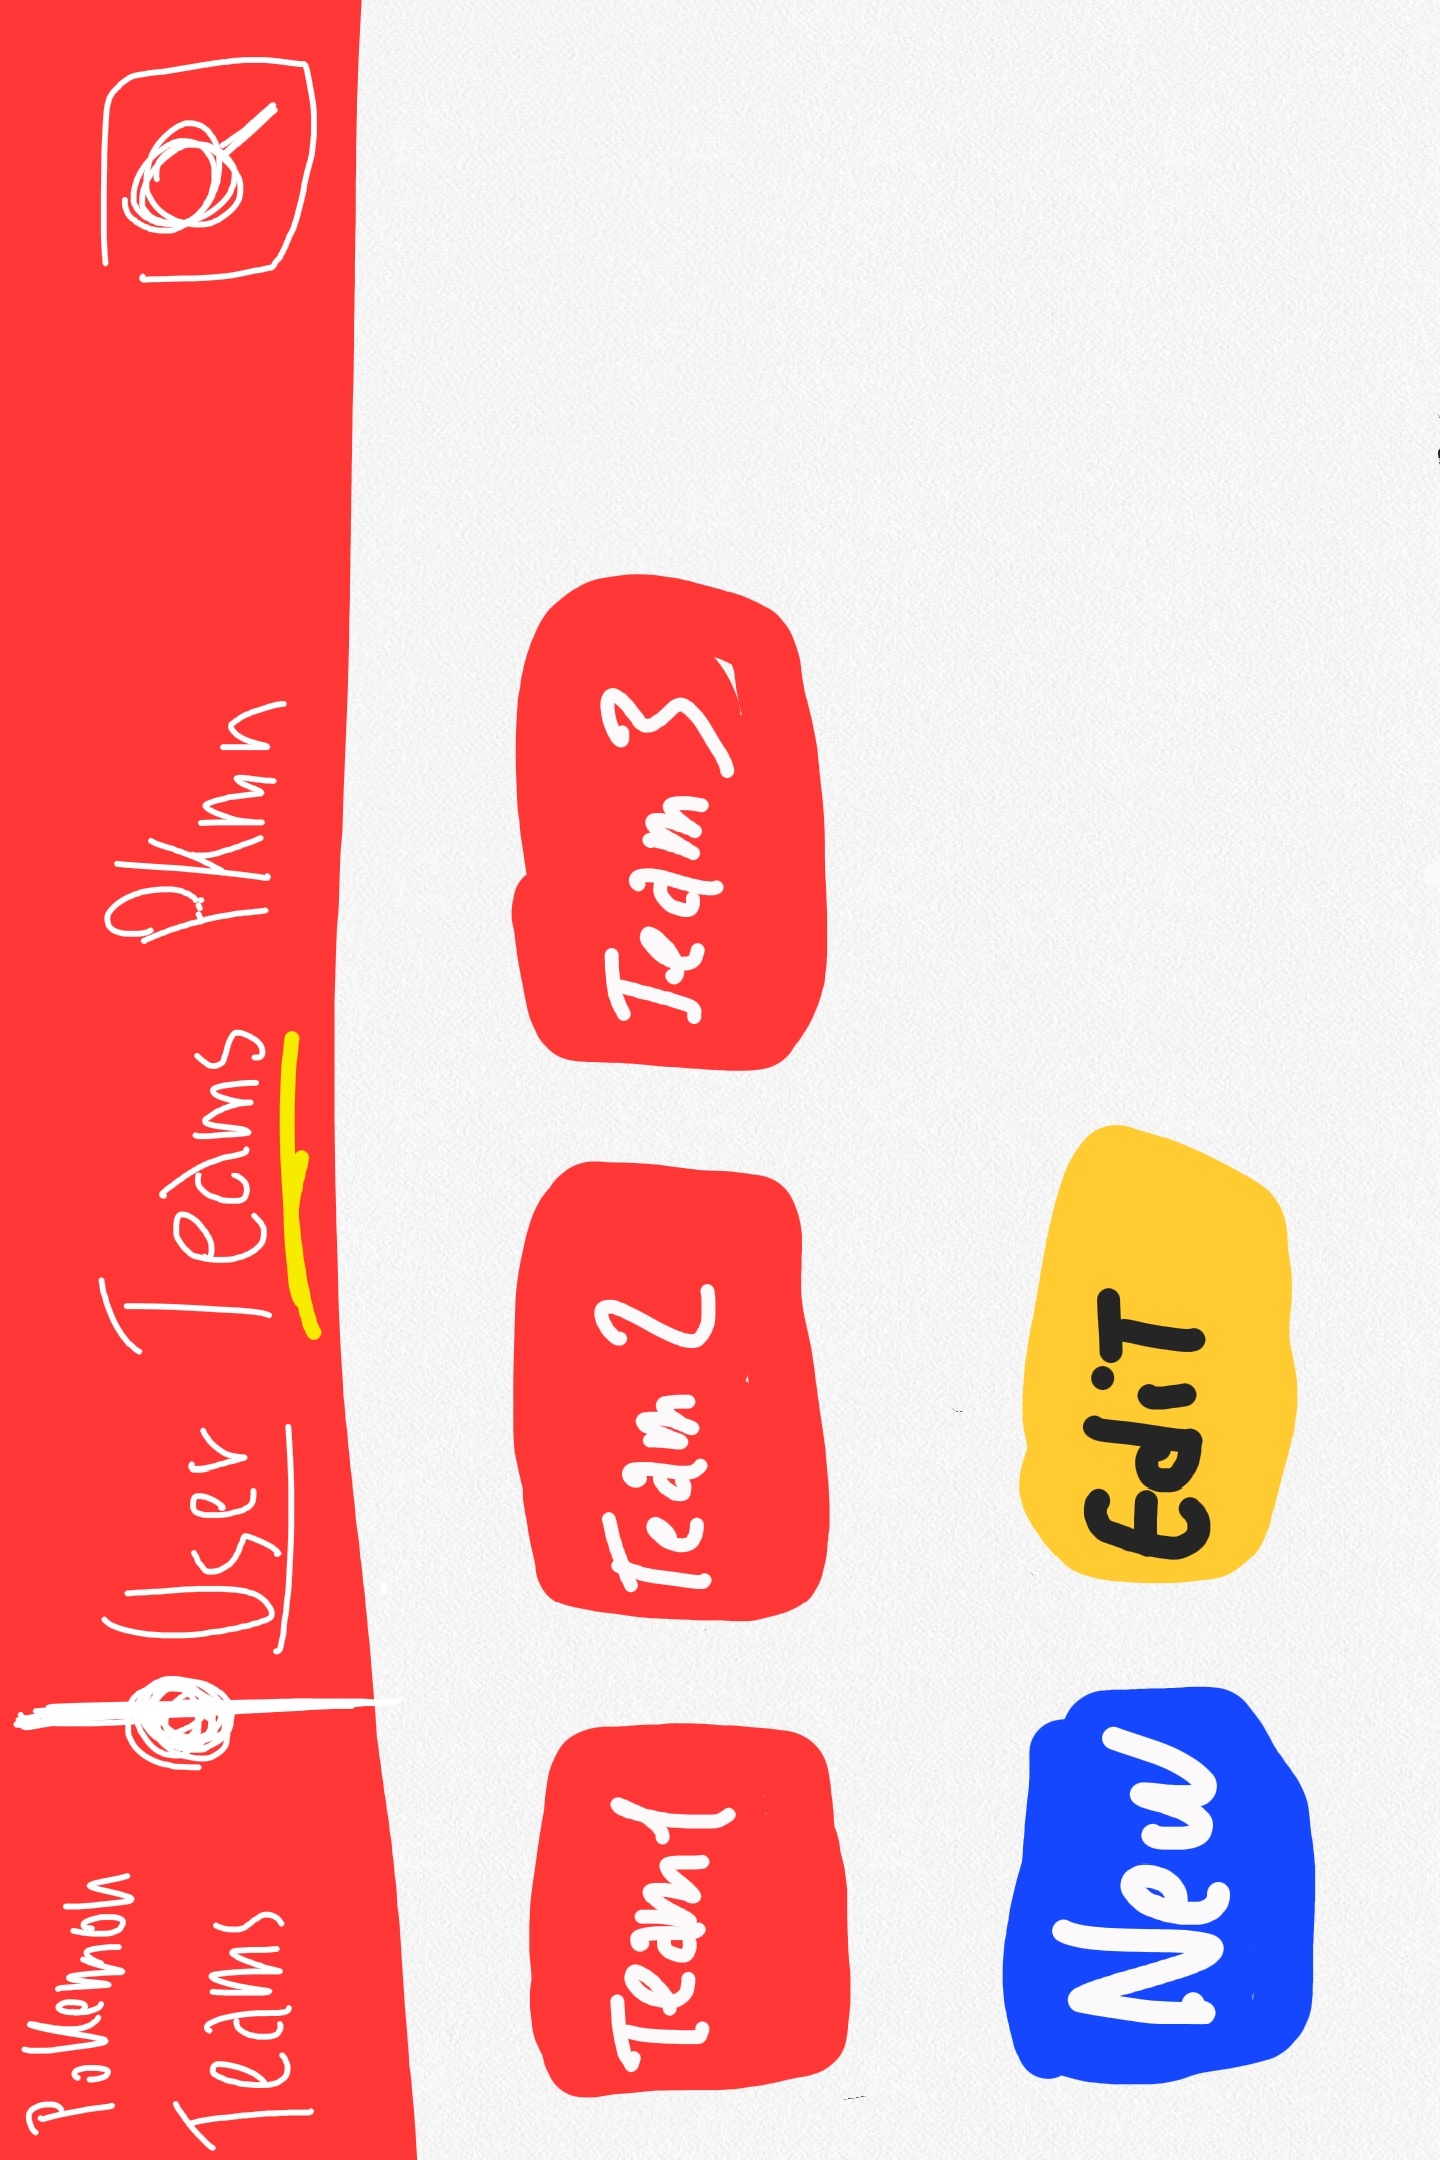 Pokemon
Teams
User Teams PKmn
Team 1
Team 2
Team 3
New
EdiT